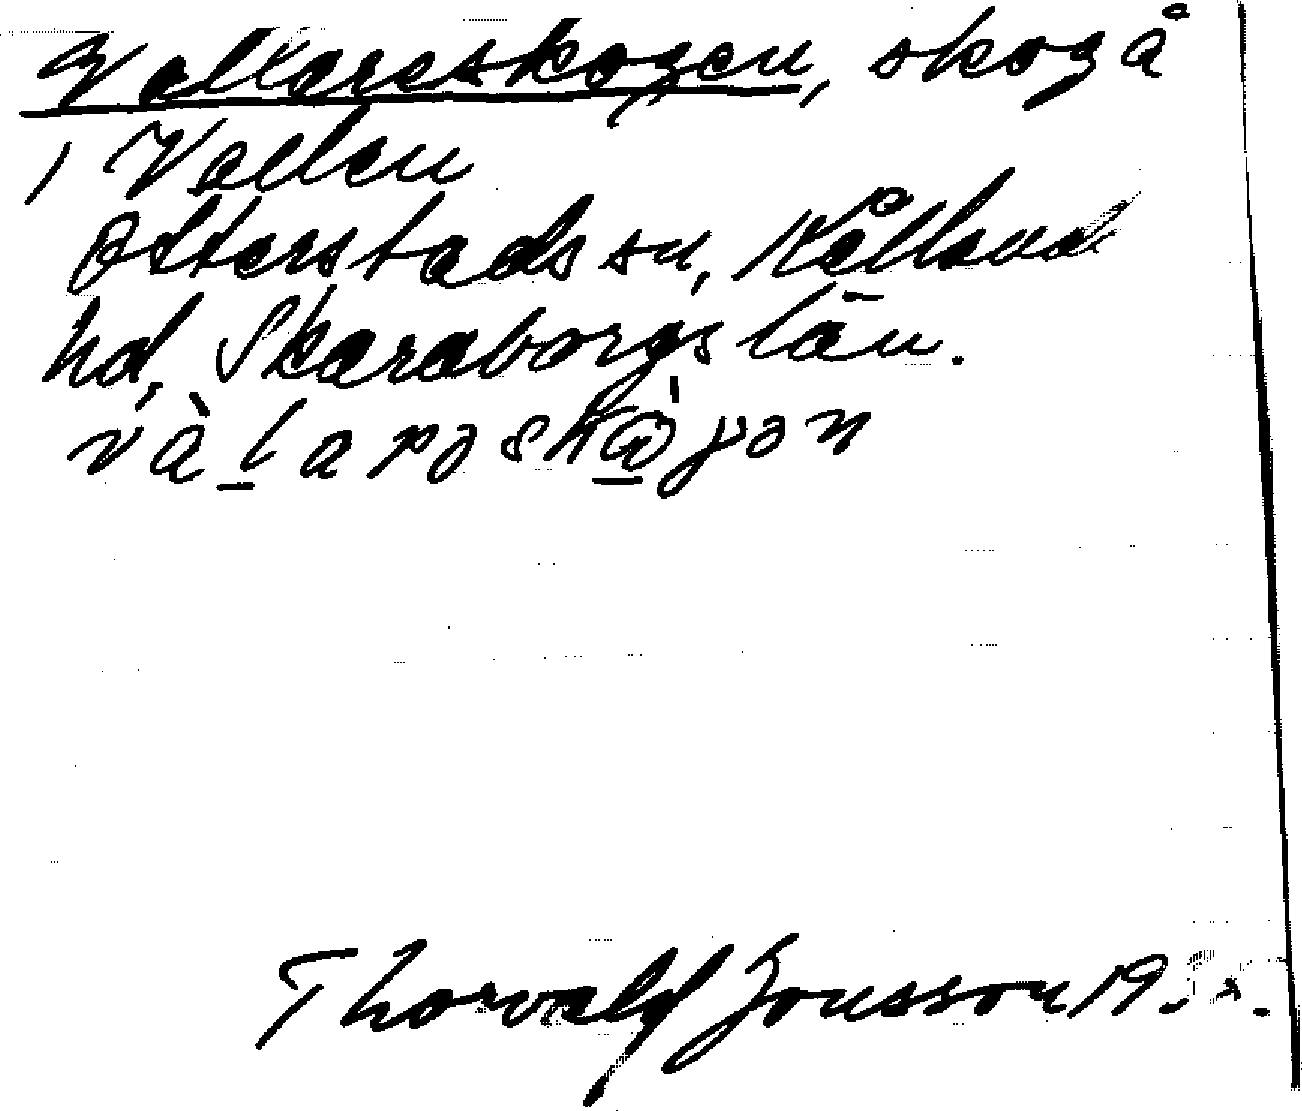 Vallareskogen, skog å
/ Vallen
Otterstads sn, Kållands
hd, Skaraborgs län.
Thorvald Jonsson 19